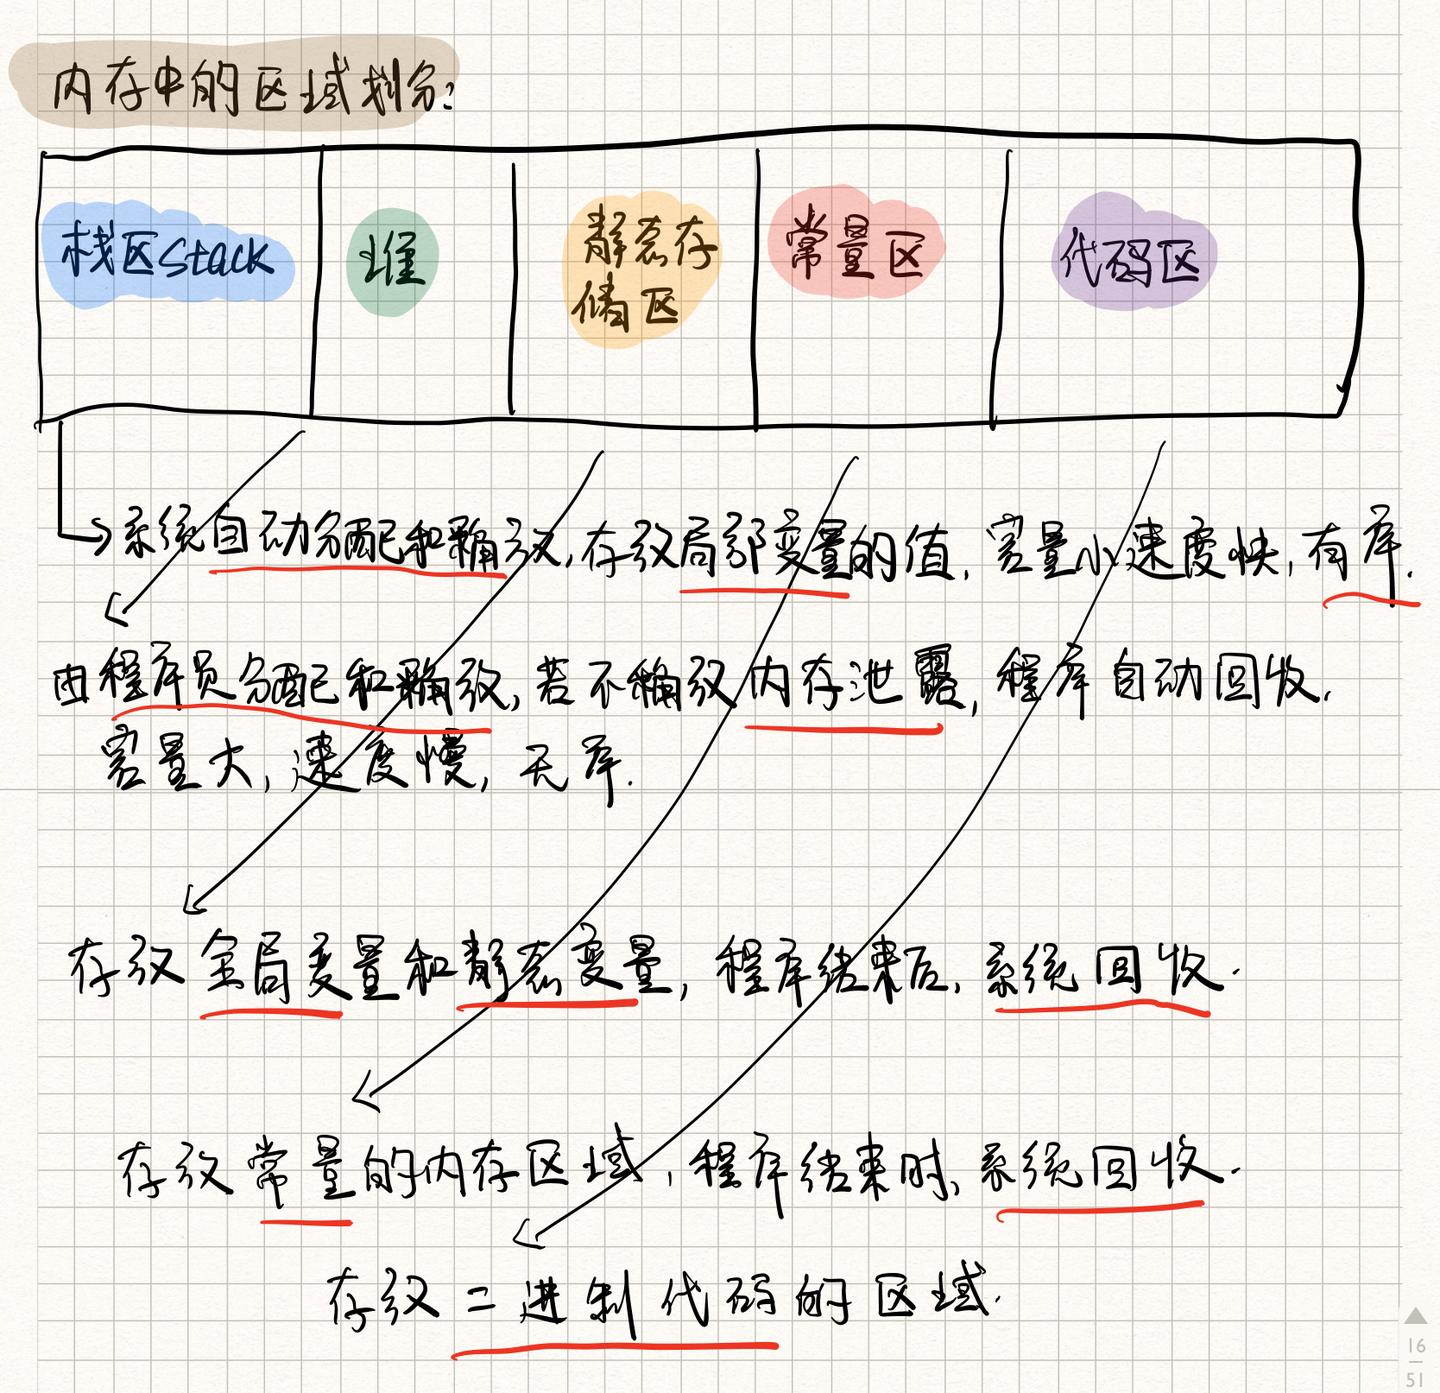 内存中的区域划分:
栈区Stack
堆
静态存
储区
常量区
代码区
系统自动分配和释放,存放局部变量的值,容量小速度快,有序.
由程序员分配和释放,若不释放内存泄露,程序自动回收.
容量大,速度慢,无序.
存放全局变量和静态变量,程序结束后,系统回收.
存放常量的内存区域,程序结束时,系统回收.
存放二进制代码的区域.
16
51